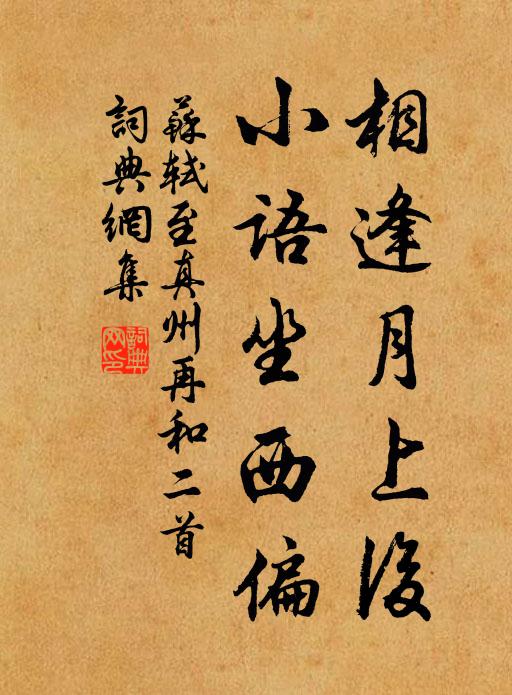 相逢月上後
小語坐西偏
蘇軾至真州再和二首
詞典網集
詞典網印